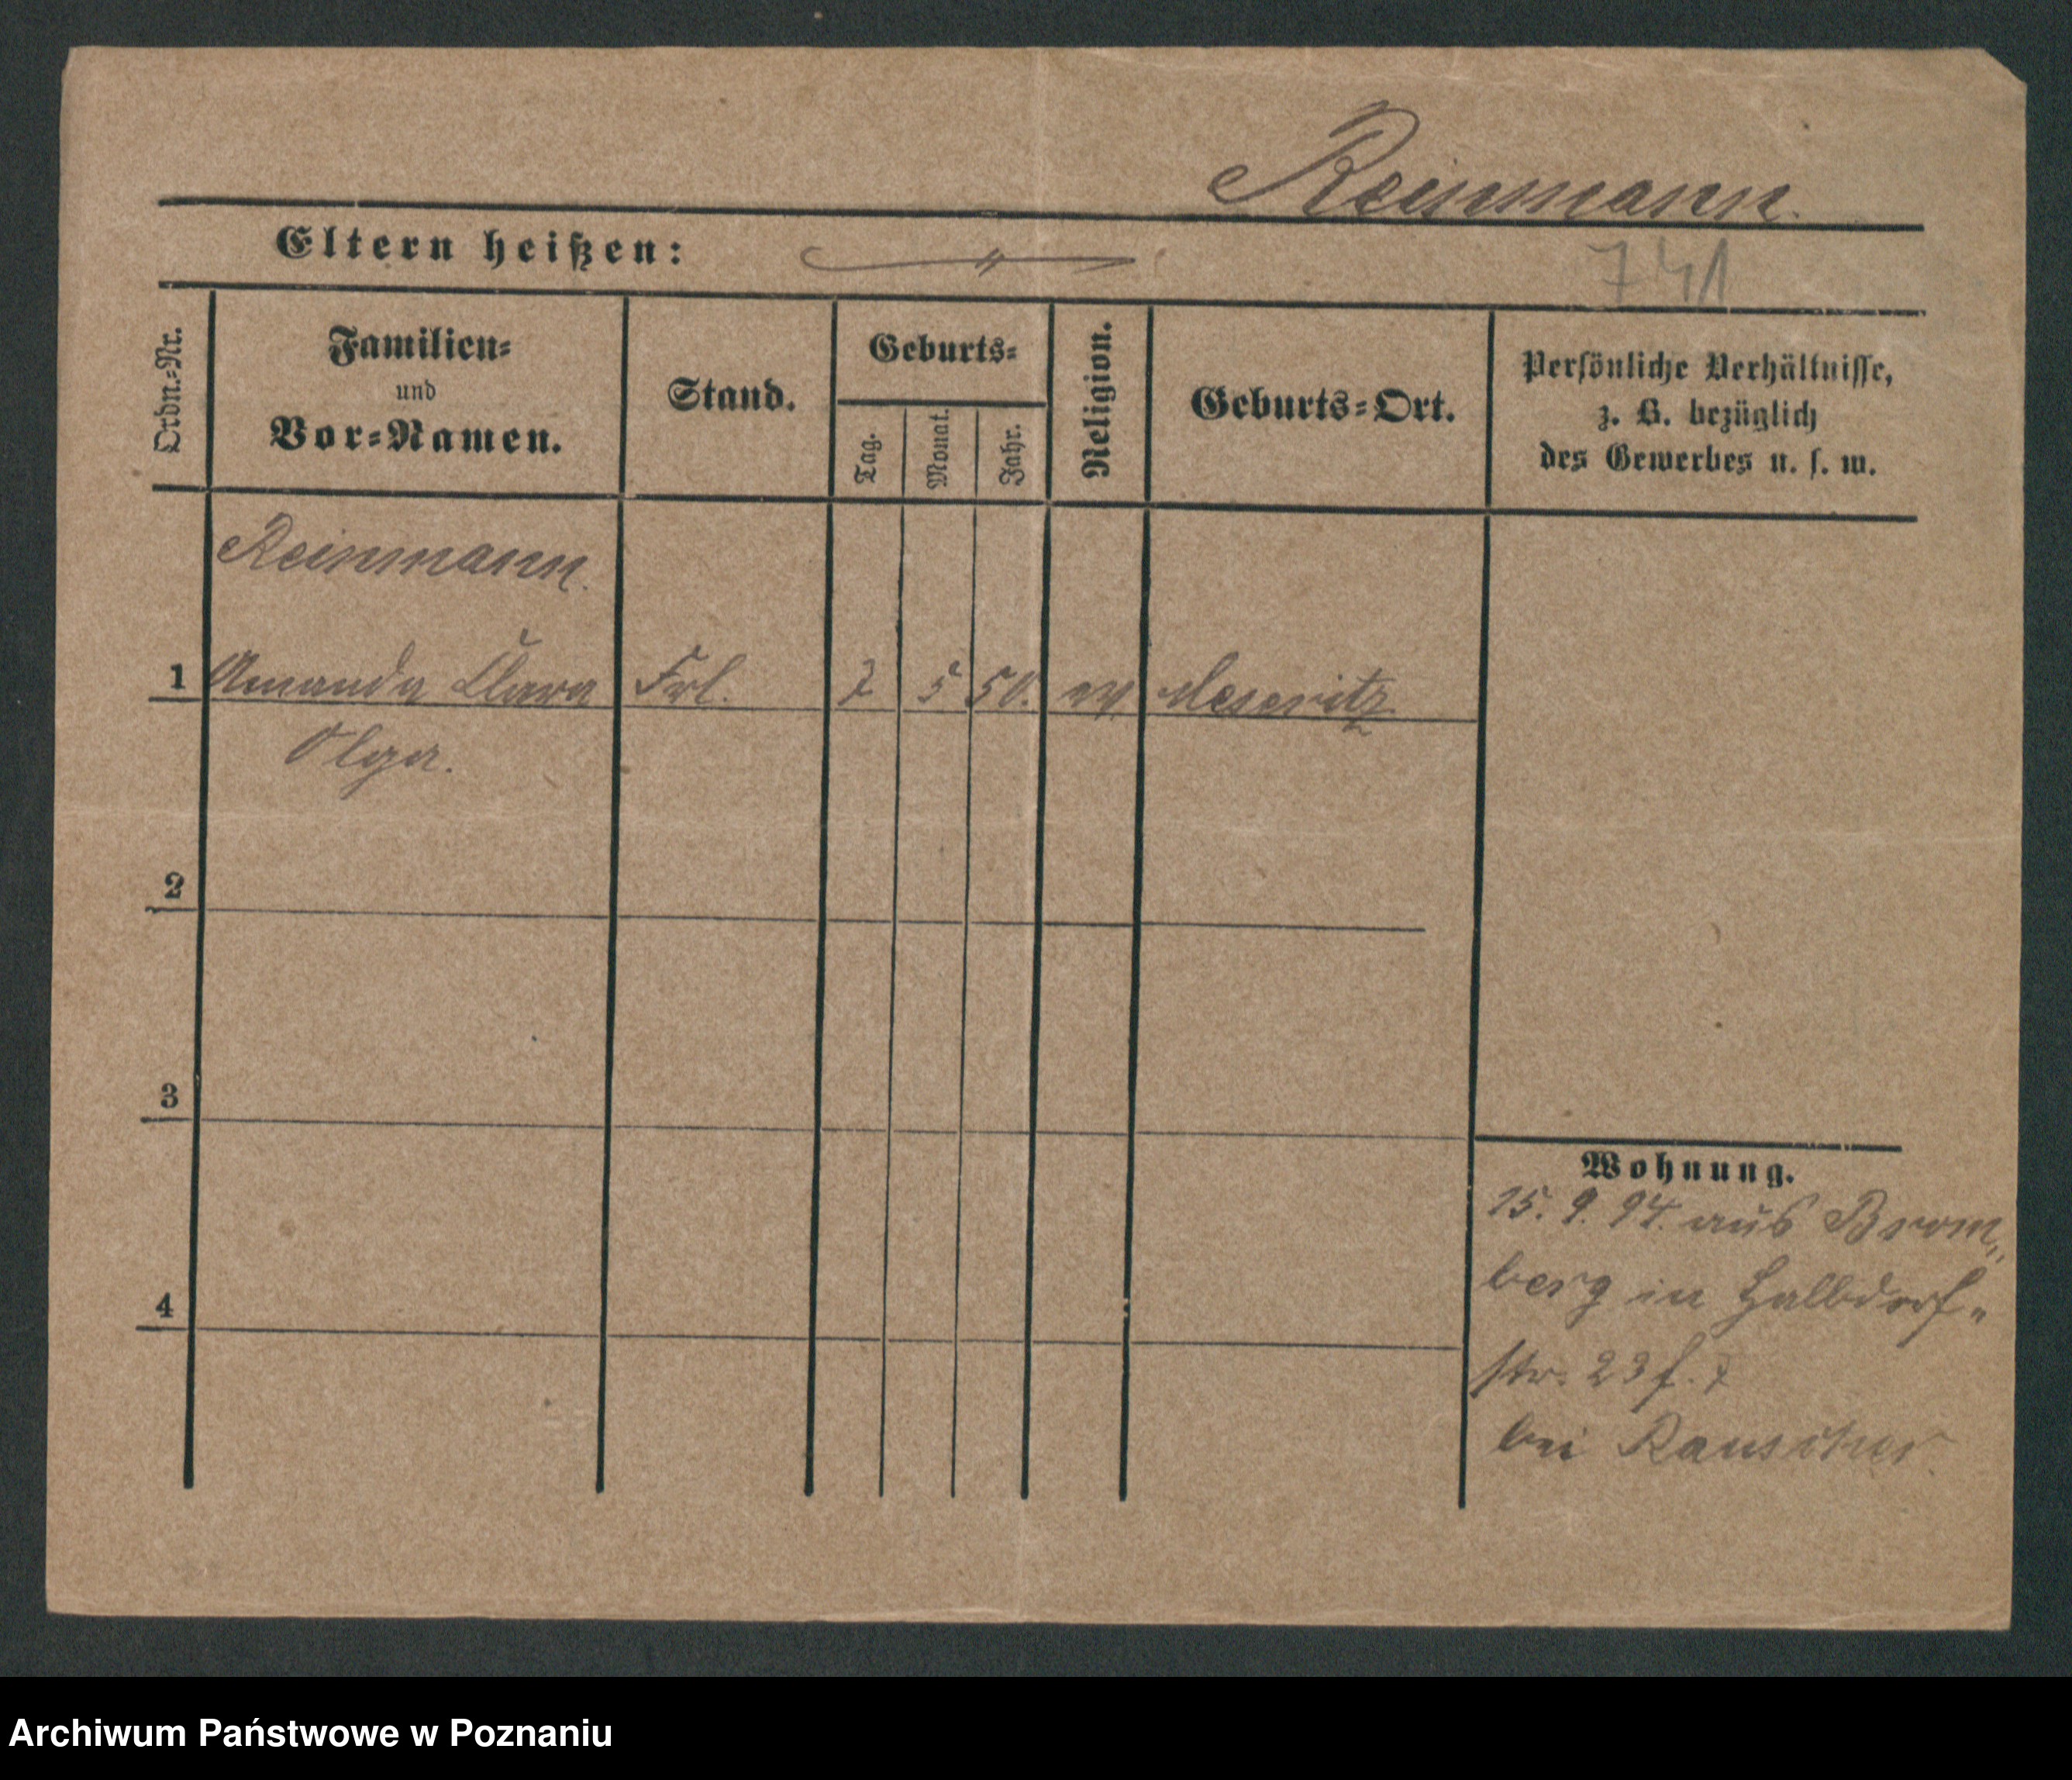 Reinmann.
Eltern heißen: —〃—
741
Ordn.-Nr.
Familien-
und
Vor-Namen.
Stand.
Geburts-
Tag.
Monat.
Jahr.
Religion.
Geburts-Ort.
Persönliche Verhältnisse,
z. B. bezüglich
des Gewerbes u. s. w.
Reinmann.
1 Amanda Clara Frl. 7 5 50. ev. Meseritz.
Olga.
2
3
4
Wohnung.
15. 9. 94. aus Brom„
berg in Halbdorf„
str. 23 f. 7
bei Rauscher.
Archiwum Państwowe w Poznaniu